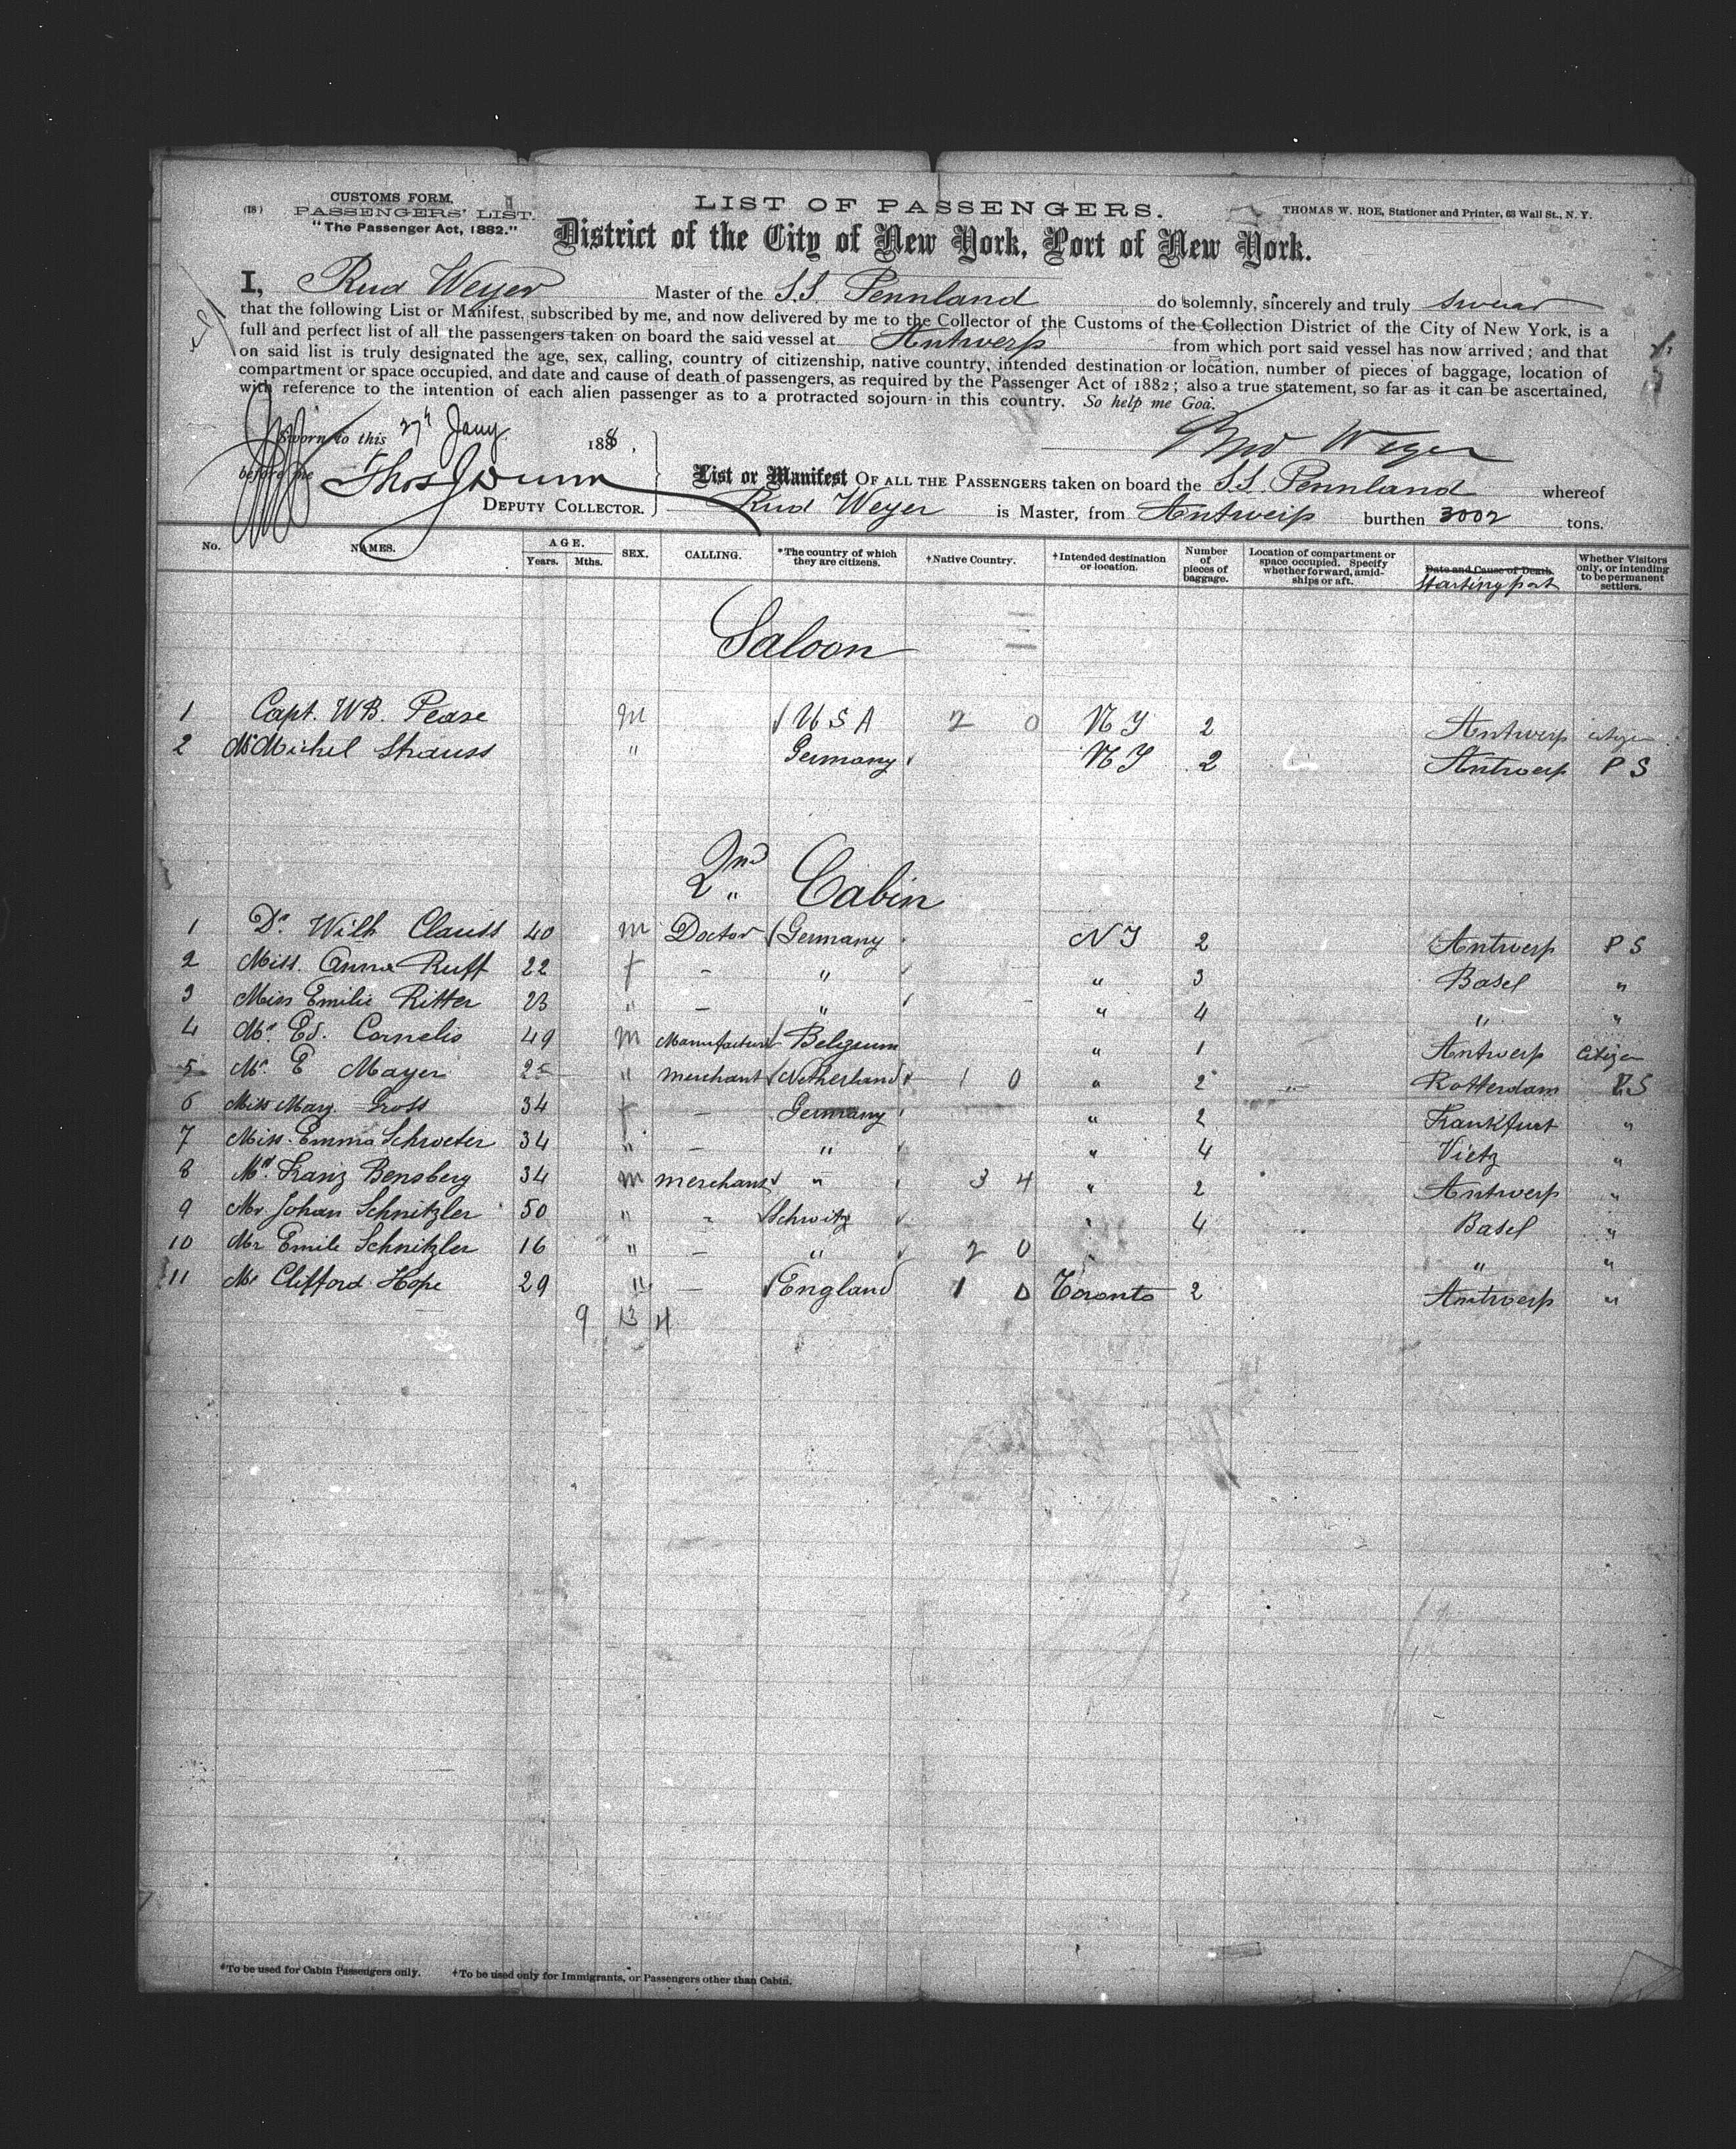 CUSTOMS FORM.
(18) PASSENGERS' LIST.
"The Passenger Act, 1882."
LIST OF PASSENGERS.
THOMAS W. ROE, Stationer and Printer, 63 Wall St., N. Y.
District of the City of New York, Port of New York.
I, Rud Weyer Master of the S.S. Pennland do solemnly, sincerely and truly swear
that the following List or Manifest, subscribed by me, and now delivered by me to the Collector of the Customs of the Collection District of the City of New York, is a
full and perfect list of all the passengers taken on board the said vessel at Antwerp from which port said vessel has now arrived; and that
on said list is truly designated the age, sex, calling, country of citizenship, native country, intended destination or location, number of pieces of baggage, location of
compartment or space occupied, and date and cause of death of passengers, as required by the Passenger Act of 1882; also a true statement, so far as it can be ascertained,
with reference to the intention of each alien passenger as to a protracted sojourn in this country. So help me God.
Sworn to this 27th Jany 1888,
Rud Weyer
before me Thos J Dunn
DEPUTY COLLECTOR.
List or Manifest OF ALL THE PASSENGERS taken on board the S.S. Pennland whereof
Rud Weyer is Master, from Antwerp burthen 3002 tons.
No. NAMES. AGE. Years. Mths. SEX. CALLING. *The country of which they are citizens. †Native Country. †Intended destination or location. Number of pieces of baggage. Location of compartment or space occupied. Specify whether forward, amidships or aft. Date and Cause of Death. Starting port Whether Visitors only, or intending to be permanent settlers.
Saloon
1 Capt. W B. Pease m U S A 2 0 N Y 2 Antwerp citizen
2 Mr Michel Strauss " Germany N Y 2 Antwerp P S
2nd Cabin
1 Dr. Wilh Clauss 40 m Doctor Germany N Y 2 Antwerp P S
2 Miss. Anna Ruff 22 f - " " 3 Basel "
3 Miss Emilie Ritter 23 " - " " 4 " "
4 Mr. Ed. Cornelis 49 m Manufacturer Belgium " 1 Antwerp Citizen
5 Mr. E Mayer 25 " merchant Netherland 1 0 " 2 Rotterdam P.S
6 Miss Marg. Gross 34 f - Germany " 2 Frankfurt "
7 Miss. Emma Schroeter 34 " - " " 4 Vietz "
8 Mr. Franz Bensberg 34 m merchant " 3 4 " 2 Antwerp "
9 Mr Johan Schnitzler 50 " - Schwitz " 4 Basel "
10 Mr Emile Schnitzler 16 " - " 2 0 " " "
11 Mr Clifford Hope 29 " - England 1 0 Toronto 2 Antwerp "
9 13 4
*To be used for Cabin Passengers only. †To be used only for Immigrants, or Passengers other than Cabin.